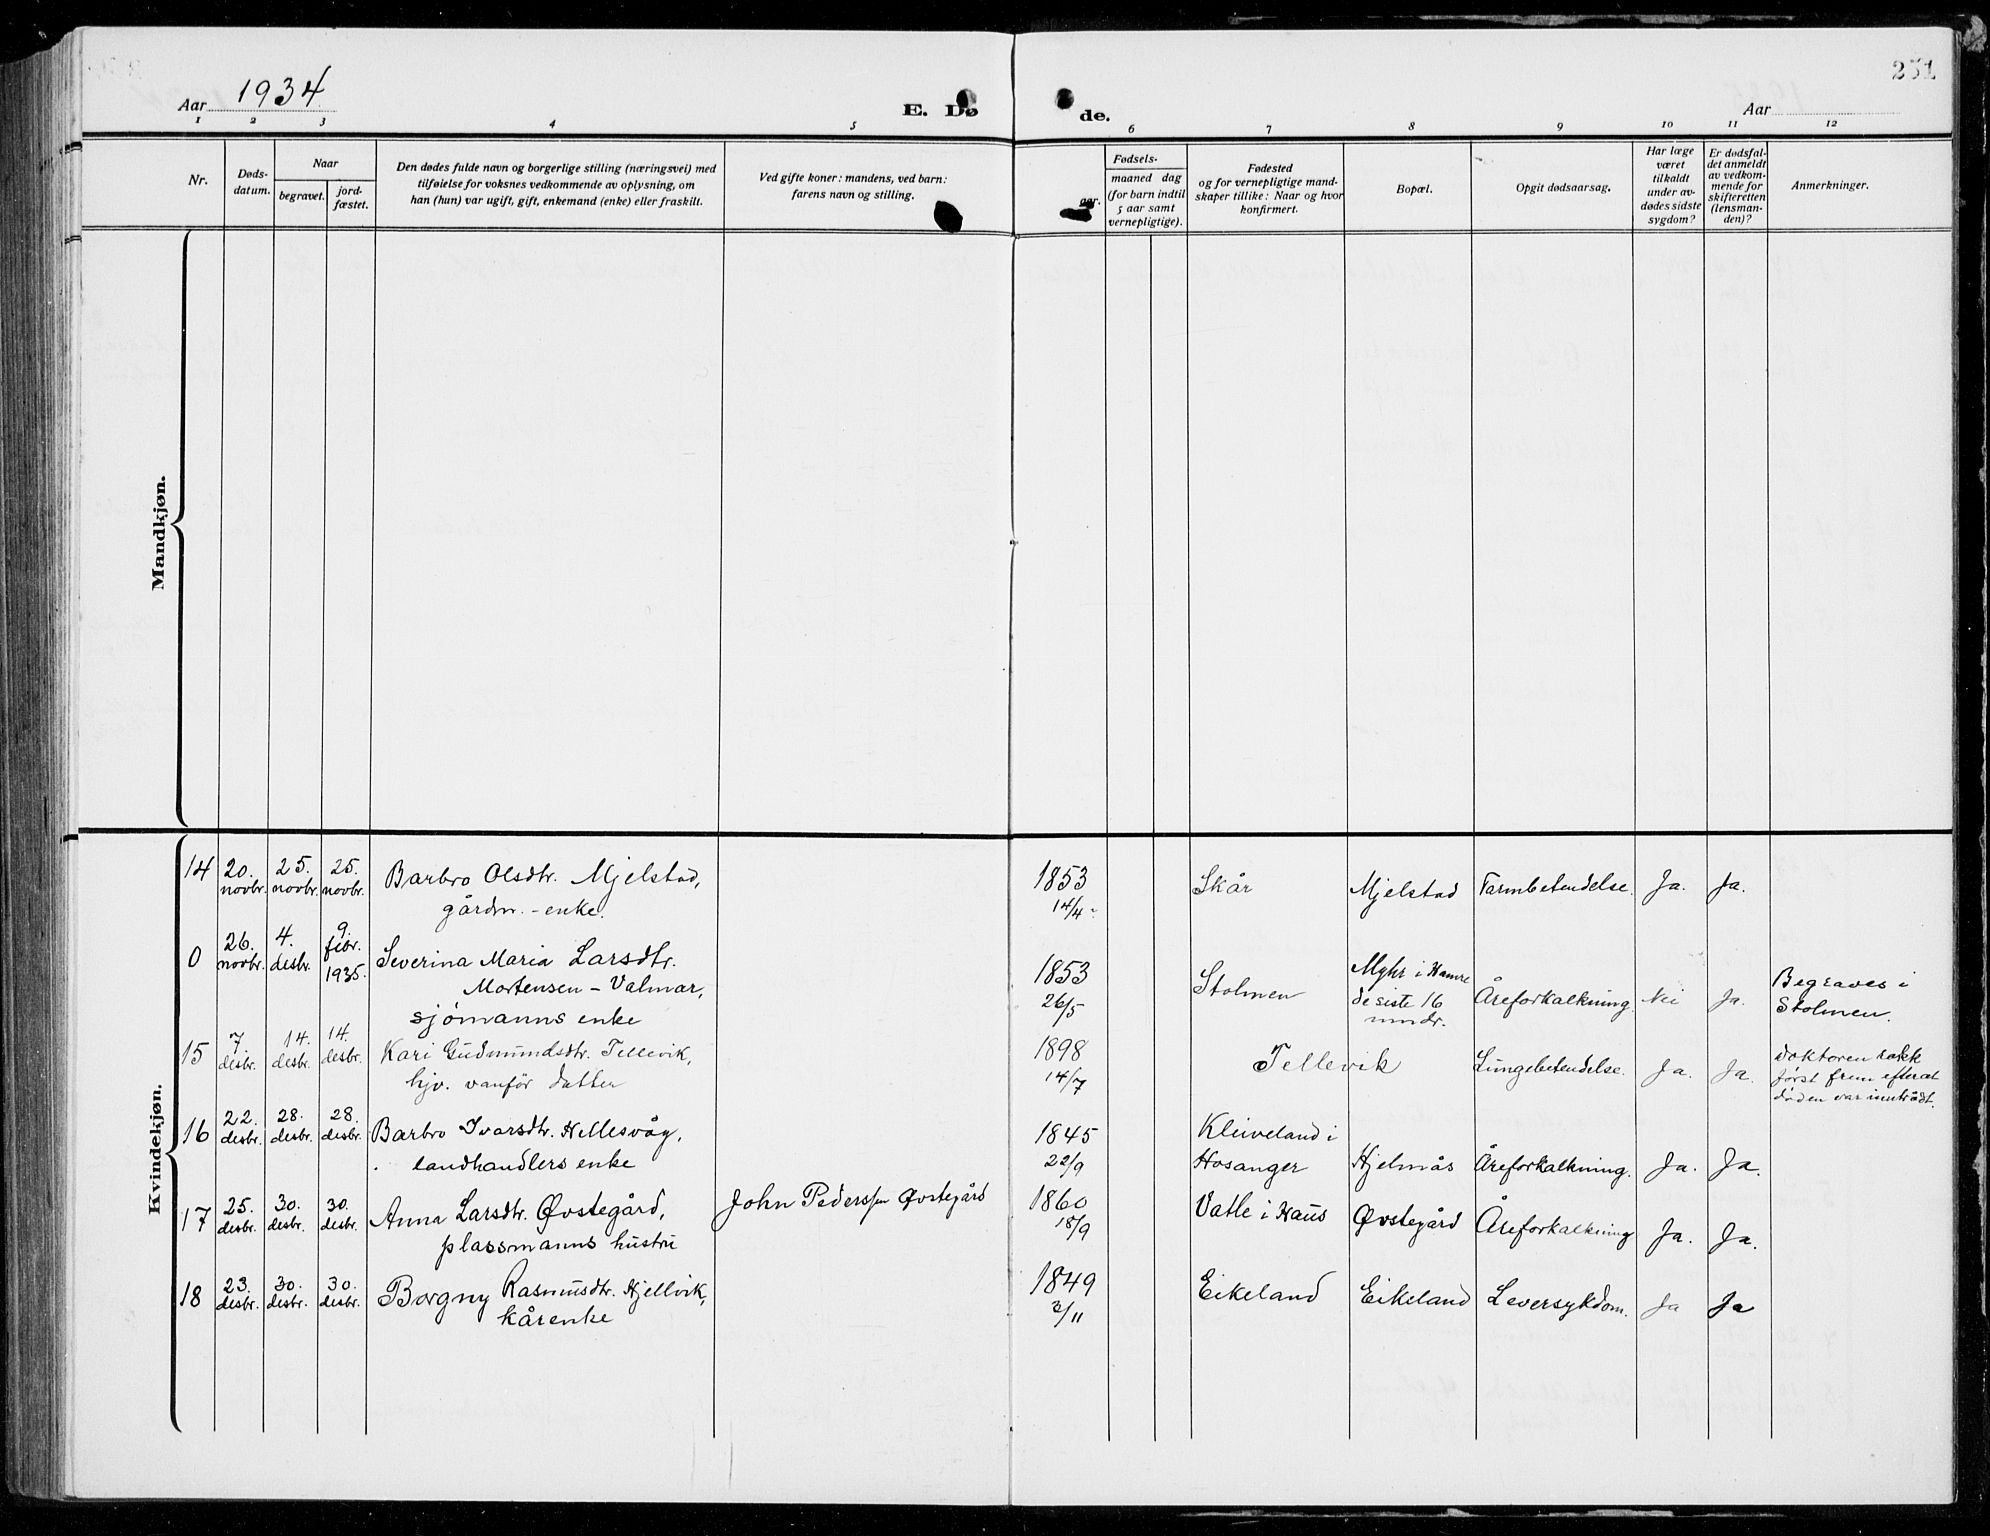 Aar 1934
E. Døde.
251
Aar
1 2 3 4 5 6 7 8 9 10 11 12
Nr.
Døds-
datum.
Naar
begravet.
jord-
fæstet.
Den dødes fulde navn og borgerlige stilling (næringsvei) med
tilføielse for voksnes vedkommende av oplysning, om
han (hun) var ugift, gift, enkemand (enke) eller fraskilt.
Ved gifte koner: mandens, ved barn:
farens navn og stilling.
Fødsels-
aar.
maaned dag
(for barn indtil
5 aar samt
vernepligtige).
Fødested
og for vernepligtige mand-
skaper tillike: Naar og hvor
konfirmert.
Bopæl.
Opgit dødsaarsag.
Har læge
været
tilkaldt
under av-
dødes sidste
sygdom?
Er dødsfal-
det anmeldt
av vedkom-
mende for
skifteretten
(lensman-
den)?
Anmerkninger.
Mandkjøn.
Kvindekjøn.
14 20. novbr. 25. novbr. 25. novbr. Barbro Olsdtr. Mjelstad,
gårdm. - enke.
1853
14/4
Skår Mjelstad Tarmbetendelse. Ja. Ja.
0 26. novbr. 4. desbr. 9. febr. 1935. Severina Maria Larsdtr.
Mortensen - Valmar,
sjømanns enke
1853
26/5
Stolmen
Myhr i Hamre
de siste 16
mndr.
Åreforkalkning. Nei Ja.
Begraves i
Stolmen.
15 7. desbr. 14. desbr. 14. desbr. Kari Gudmundsdtr. Tellevik,
hjv. vanför datter
1898
14/7
Tellevik Lungebetendelse. Ja. Ja.
Doktoren rakk
først frem efterat
døden var inntrådt.
16 22. desbr. 28. desbr. 28. desbr. Barbro Ivarsdtr. Hellesvåg,
landhandlers enke
1845
22/9
Kleiveland i
Hosanger Hjelmås Åreforkalkning. Ja. Ja.
17 25. desbr. 30. desbr. 30. desbr. Anna Larsdtr. Øvstegård,
plassmanns hustru
John Pederssen Øvstegård
1860
18/9
Vatle i Haus Øvstegård Åreforkalkning Ja. Ja.
18 23. desbr. 30. desbr. 30. desbr. Borgny Rasmusdtr. Hjellvik,
kårenke
1849
3/11
Eikeland Eikeland Leversykdom. Ja Ja